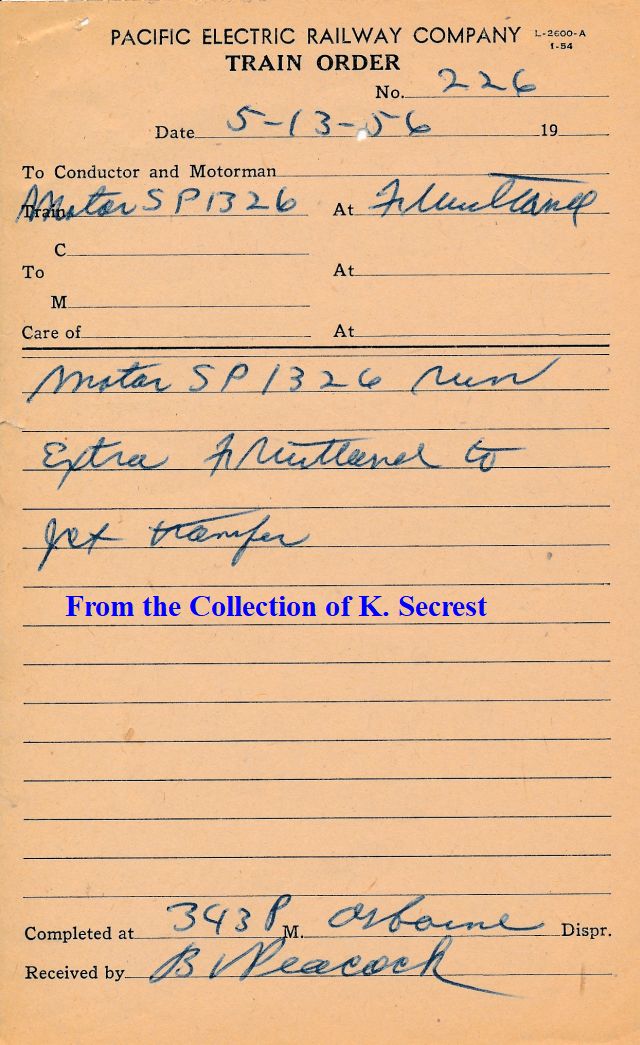 PACIFIC ELECTRIC RAILWAY COMPANY L-2600-A
1-54
TRAIN ORDER
No. 226
Date 5-13-56 19
To Conductor and Motorman
Train Motor SP 1326 At Fruitland
C
To At
M
Care of At
Motor SP 1326 run
Extra Fruitland to
Jct tranfer
From the Collection of K. Secrest
Completed at 343 P M. Osborne Dispr.
Received by B Peacock